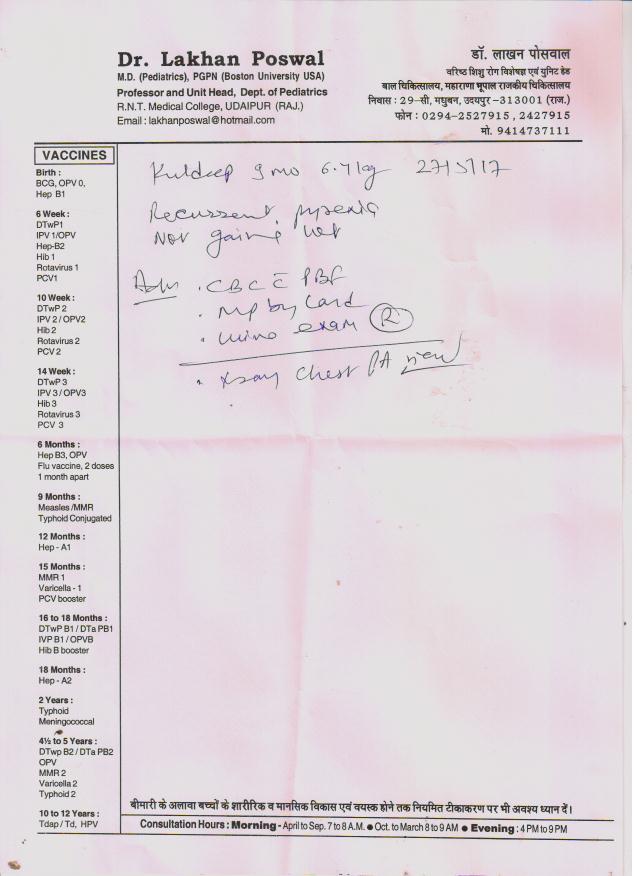 Dr. Lakhan Poswal
M.D. (Pediatrics), PGPN (Boston University USA)
Professor and Unit Head, Dept. of Pediatrics
R.N.T. Medical College, UDAIPUR (RAJ.)
Email : lakhanposwal@hotmail.com
डॉ. लाखन पोसवाल
वरिष्ठ शिशु रोग विशेषज्ञ एवं युनिट हेड
बाल चिकित्सालय, महाराणा भूपाल राजकीय चिकित्सालय
निवास : 29-सी, मधुबन, उदयपुर -313001 (राज.)
फोन : 0294-2527915, 2427915
मो. 9414737111
VACCINES
Birth :
BCG, OPV 0,
Hep B1
6 Week :
DTwP1
IPV 1/OPV
Hep-B2
Hib 1
Rotavirus 1
PCV1
10 Week :
DTwP 2
IPV 2 / OPV2
Hib 2
Rotavirus 2
PCV 2
14 Week :
DTwP 3
IPV 3 / OPV3
Hib 3
Rotavirus 3
PCV 3
6 Months :
Hep B3, OPV
Flu vaccine, 2 doses
1 month apart
9 Months :
Measles /MMR
Typhoid Conjugated
12 Months :
Hep - A1
15 Months :
MMR 1
Varicella - 1
PCV booster
16 to 18 Months :
DTwP B1 / DTa PB1
IVP B1 / OPVB
Hib B booster
18 Months :
Hep - A2
2 Years :
Typhoid
Meningococcal
4½ to 5 Years :
DTwp B2 / DTa PB2
OPV
MMR 2
Varicella 2
Typhoid 2
10 to 12 Years :
Tdap / Td, HPV
Kuldeep 9 mo 6.7 kg 27/5/17
Recurrent pyrexia
Not gaining wt
Adv . CBC c̄ PBF
. MP by Card
. urine exam (R)
. Xray Chest PA view
बीमारी के अलावा बच्चों के शारीरिक व मानसिक विकास एवं वयस्क होने तक नियमित टीकाकरण पर भी अवश्य ध्यान दें।
Consultation Hours : Morning - April to Sep. 7 to 8 A.M. ● Oct. to March 8 to 9 AM ● Evening : 4 PM to 9 PM